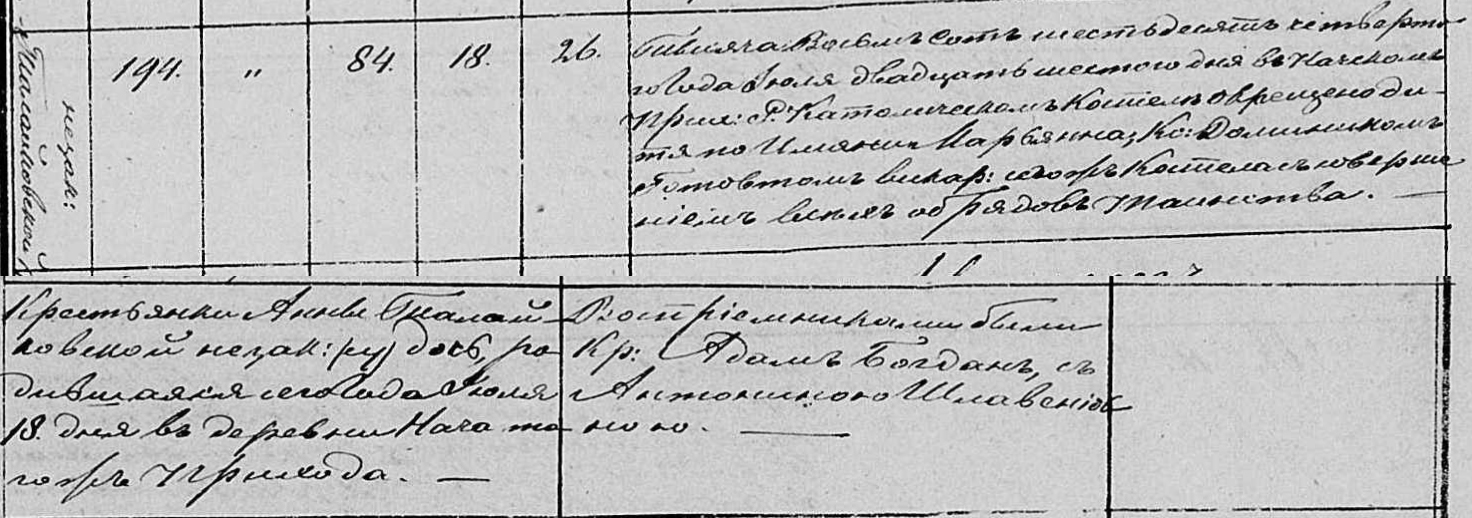 незак:
194. „ 84. 18. 26.
Тысяча Восемьсотъ шестьдесятъ четверто
го Года Іюля двадцать шестого дня въ Начскомъ
Прих: Р. Католическомъ Костелѣ окрещено ди-
тя по Имяни Марьянна, Кс: Доминикомъ
викар: сегожъ Костела съ соверше
ніемъ всѣхъ обрядовъ таинства. —
Крестьянки Анны
ковской незак: дочь, ро
дившаяся сего Года Іюля
18. дня въ деревни Нача то
гожъ Прихода. —
Воспріемниками были
Кр: Адамъ Богданъ, съ
Антониною Шлавеніов
ною. —